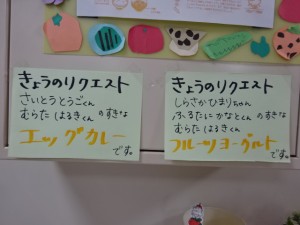 きょうのリクエスト
さいとうとうごくん
むらた はるきくん のすきな
エッグカレー
です。
きょうのリクエスト
しらさかひまりちゃん
ふるたにかなとくん のすきな
むらた はるきくん
フルーツヨーグルト
です。